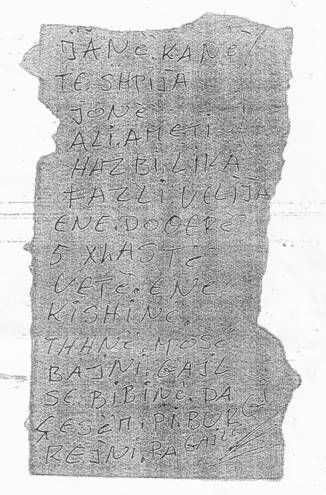 JANË.KANË
TE.SHPIJA
JONË
ALI.AMETI
HAZBI.LIKA
FAZLI VELIJA
ENE.DOBERË
5 XhASTË
VETË.ENE
KISHINË.
THANË.MOSË
BAJNI.GAJL
SE.BIBINË.DA
ÇESËM.PI.BURG
REJNI.PA GAJLË